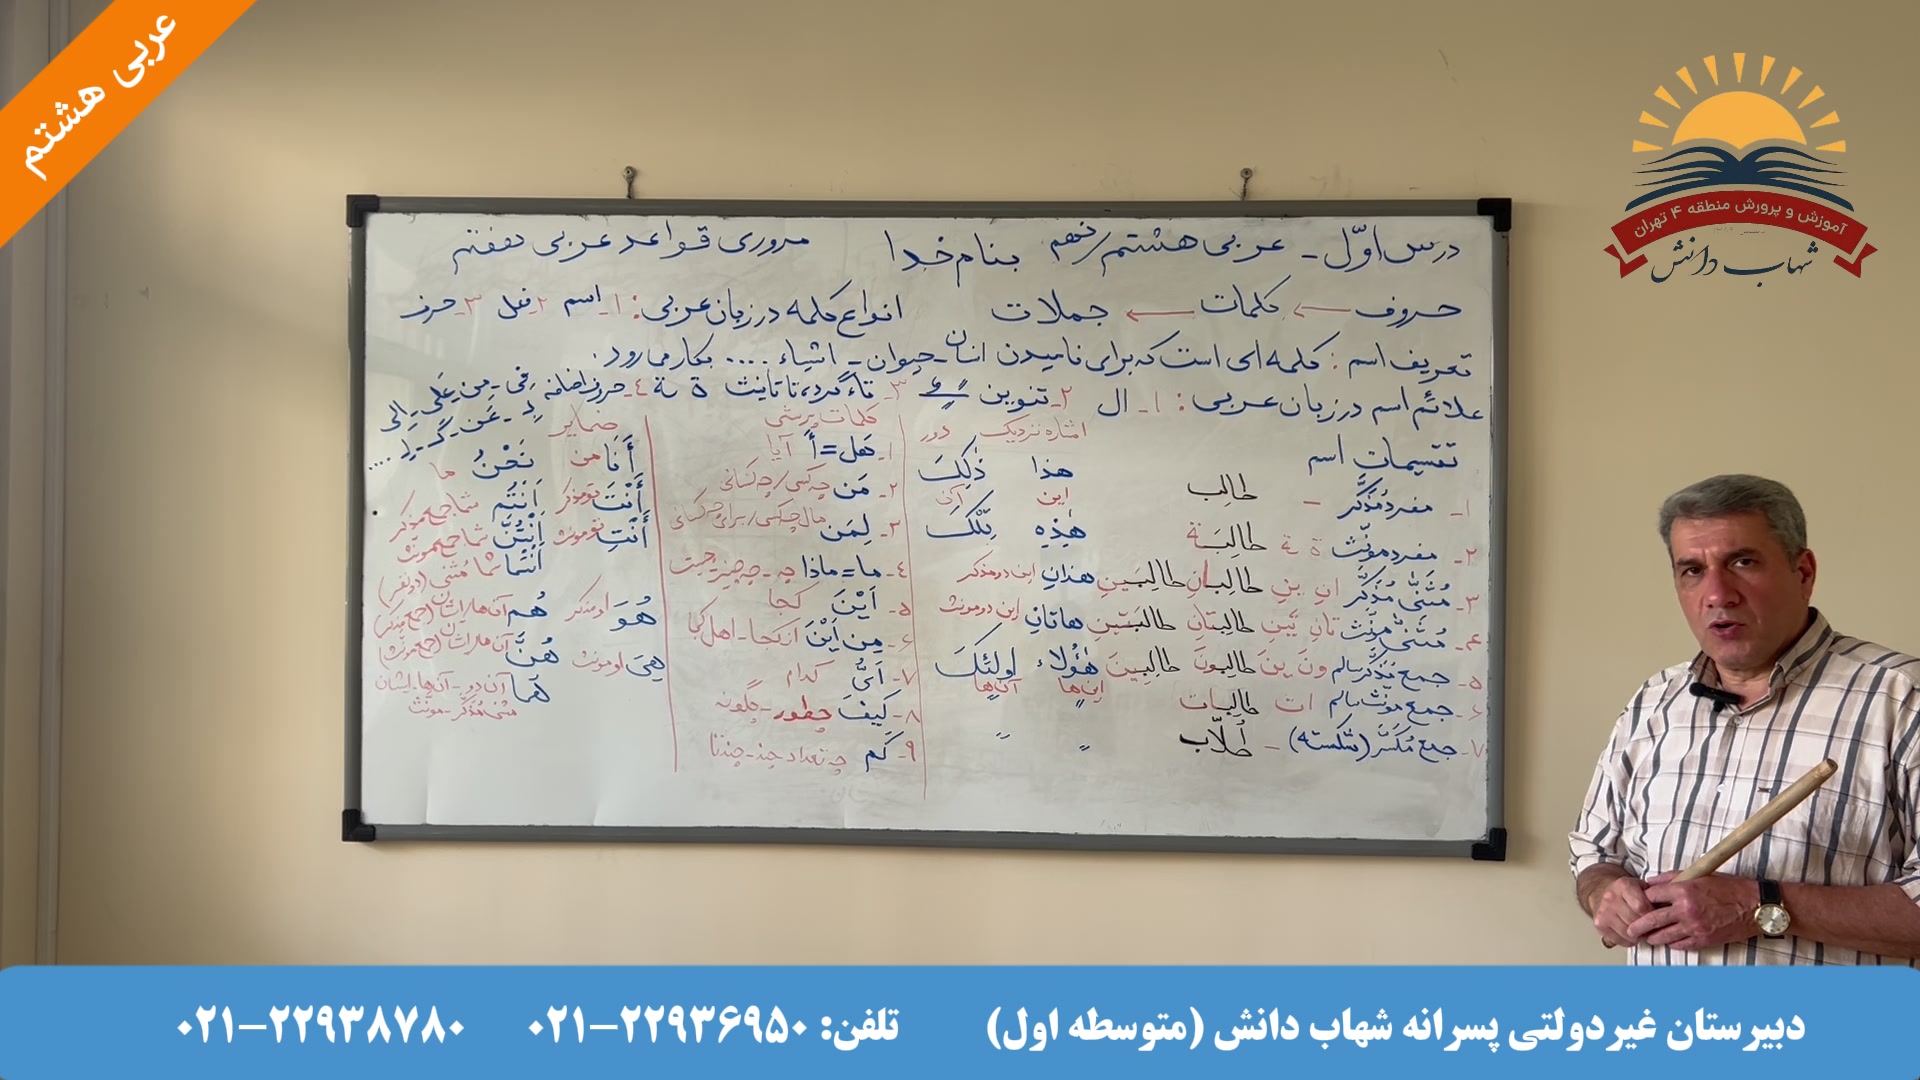 عربی هشتم
آموزش و پرورش منطقه ۴ تهران
شهاب دانش
درس اوّل - عربی هشتم/نهم بنام خدا مروری قواعد عربی هفتم
حروف ← کلمات ← جملات انواع کلمه در زبان عربی: ۱- اسم ۲- فعل ۳- حرف
تعریف اسم: کلمه ای است که برای نامیدن انسان - حیوان - اشیاء .... بکار می رود.
علائم اسم در زبان عربی: ۱- ال ۲- تنوین ـًـٍـٌ ۳- تاء گرد، تا تأنیث ة ـة ٤- حروف اضافه فی - مِن - عَلی - اِلی
بِـ - عَن - کَـ - لِـ ....
تقسیمات اسم
اشاره نزدیک دور
۱- مفرد مُذَکَّر - طالِب هذا ذٰلِکَ
این آن
۲- مفرد مونّث ة ـة طالِبَـة هٰذِهِ تِلْکَ
۳- مُثَنّیٰ مُذَکَّر انِ ینِ طالِبانِ طالِبَینِ هذانِ این دو مذکر
۴- مُثَنّیٰ مونّث تانِ تَینِ طالِبَتانِ طالِبَتَینِ هاتانِ این دو مونث
۵- جمع مُذَکَّر سالم ونَ ینَ طالِبونَ طالِبینَ هٰؤُلاء اولئِکَ
این‌ها آن‌ها
۶- جمع مونّث سالم ات طالِبات
۷- جمع مُکَسَّر (شکسته) - طُلّاب " "
کلمات پرسشی
۱- هَل = أ آیا
۲- مَن چه کسی/چه کسانی
۳- لِمَن مال چه کسی/برای چه کسانی
٤- ما = ماذا چه - چه چیز - چیست
۵- اَیْنَ کجا
۶- مِن اَیْنَ از کجا - اهل کجا
۷- اَیُّ کدام
۸- کَیفَ چطور - چگونه
۹- کَم چه تعداد - چند - چندتا
ضمایر
أَنَا من نَحْنُ ما
أَنْتَ تو مذکر اَنْتُم شما جمع مذکر
أَنْتِ تو مونث اَنْتُنَّ شما جمع مونث
اَنْتُما شما مُثنی (دو نفر)
هُوَ او مذکر هُم آن‌ها، ایشان (جمع مذکر)
هِیَ او مونث هُنَّ آن‌ها، ایشان (جمع مونث)
هُما آن دو - آن‌ها - ایشان
مثنی مُذکر - مونث
دبیرستان غیردولتی پسرانه شهاب دانش (متوسطه اول) تلفن: ۲۲۹۳۶۹۵۰-۰۲۱ ۲۲۹۳۸۷۸۰-۰۲۱